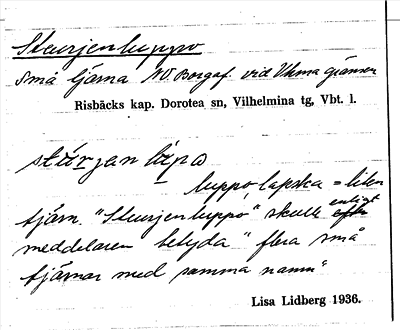 Sturjenluppo
små tjärna NV Borgaf. vid Vilma gränsen
Risbäcks kap. Dorotea sn, Vilhelmina tg, Vbt. l.
luppo lapska = liten
enligt
tjärn. "Sturjenluppo" skulle efter
meddelaren betyda "flera små
tjärnar med samma namn"
Lisa Lidberg 1936.